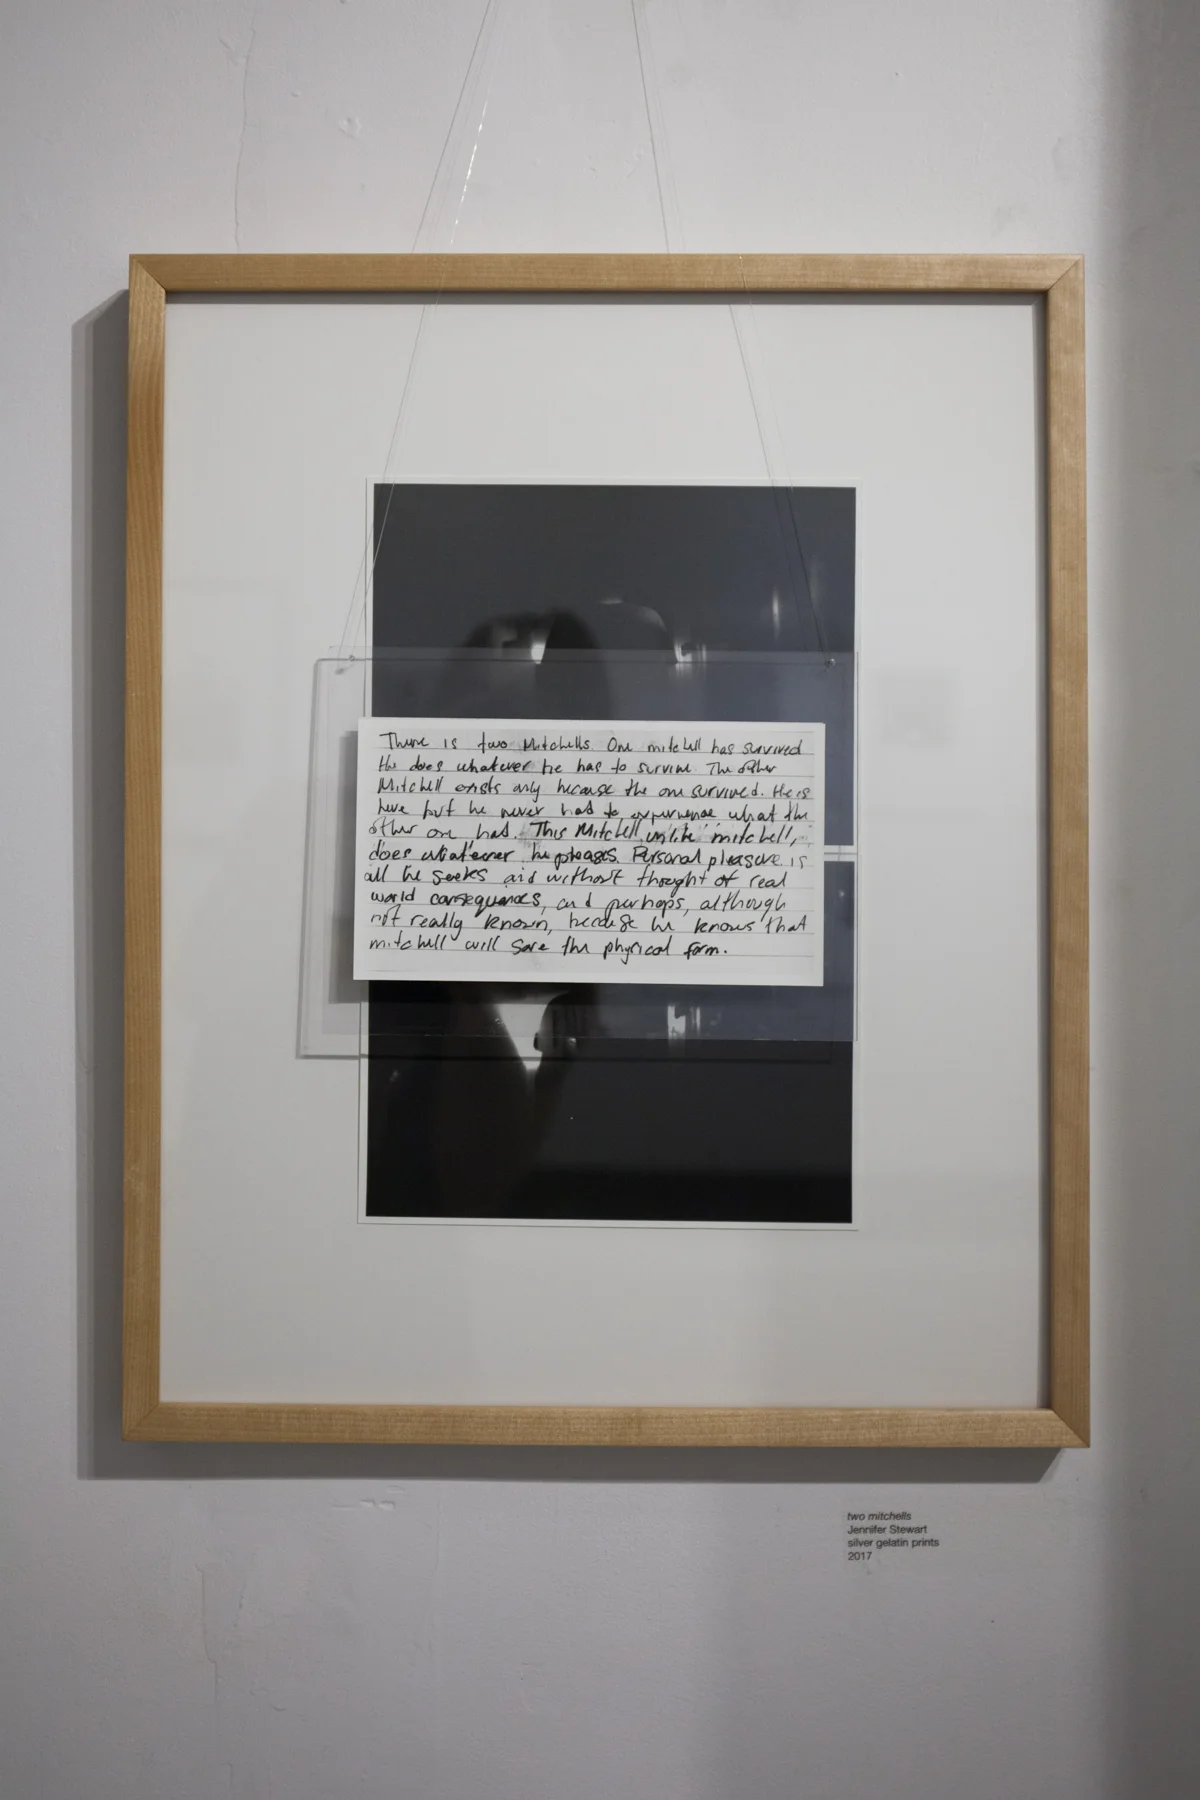 There is two Mitchells. One mitchell has survived
He does whatever he has to survive. The other
Mitchell exists only because the one survived. He is
here but he never had to experience what the
other one had. This Mitchell, unlike mitchell,
does whatever he pleases. Personal pleasure is
all he seeks and without thought of real
world consequences, and perhaps, although
not really known, because he knows that
mitchell will save the physical form.
two mitchells
Jennifer Stewart
silver gelatin prints
2017